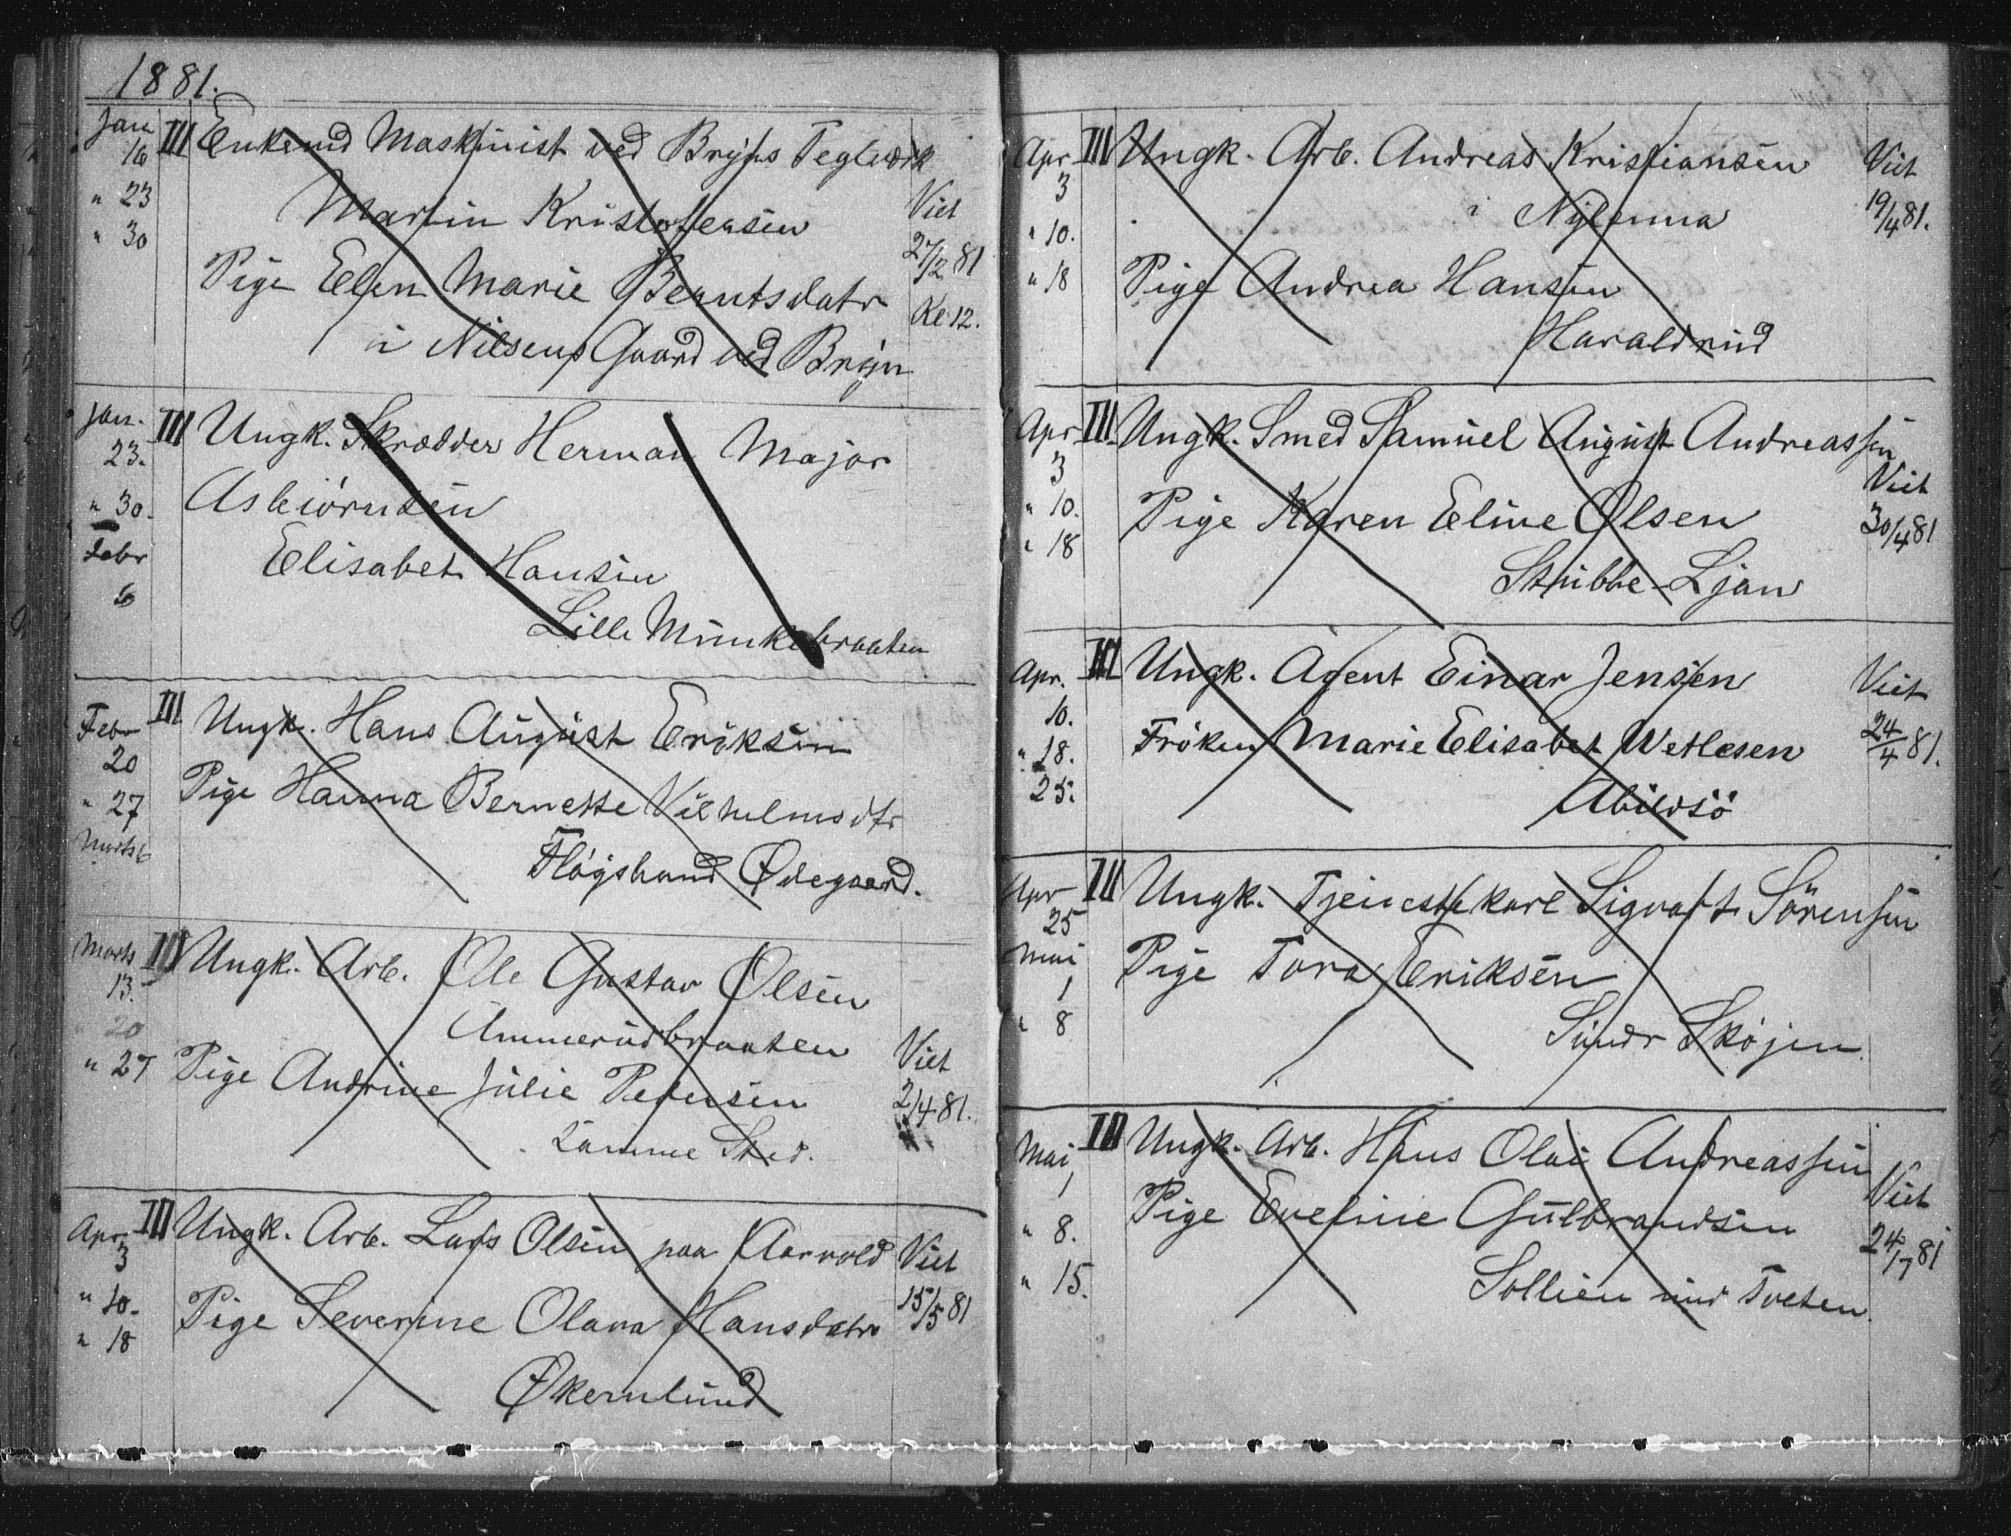 1881.
Jan 16 III Enkemd Maskinist ved Bryns Teglværk
" 23 Martin Kristofersen Viet
" 30 27/2 81
Pige Elen Marie Berntsdatr Kl 12.
i Nilsens Gaard ved Bryn
Jan. 23. III Ungk. Skrædder Herman Major
" 30. Asbiörnsen
Febr 6 Elisabet Hansen
Lille Munkebraaten
Febr 20 III Ungk. Hans August Eriksen
" 27 Pige Hanna Bernette Vilhelmsdtr
Marts 6 Fløgshand Ødegaard.
Marts 13. III Ungk. Arb. Ole Gustav Olsen
20 Ammerudbraaten
" 27 Pige Andrine Julie Pedersen Viet 2/4 81.
Samme Sted.
Apr. 3 III Ungk. Arb. Lars Olsen paa Aarvold Viet
" 10. Pige Severine Olava Hansdatr 15/5 81
" 18 Økernlund
Apr 3 III Ungk. Arb. Andreas Kristiansen Viet
" 10. i Nylenna 19/4 81.
" 18 Pige Andrea Hansen
Haraldrud
Apr 3 III Ungk. Smed Samuel August Andreassen
" 10. Pige Karen Eline Olsen Viet 30/4 81
" 18 Stubbe-Ljan
Apr. 10. III Ungk. Agent Einar Jensen Viet
" 18. Fröken Marie Elisabet Wetlesen 24/4 81.
25. Abildsö
Apr 25 III Ungk. Tjenestekarl Sigvart Sörensen
Mai 1 Pige Tora Eriksen
" 8 Søndr Skøjen.
Mai 1 III Ungk. Arb. Hans Olai Andreassen
" 8. Pige Eveline Gulbrandsen Viet 24/7 81
" 15. Sollien und Tveten.